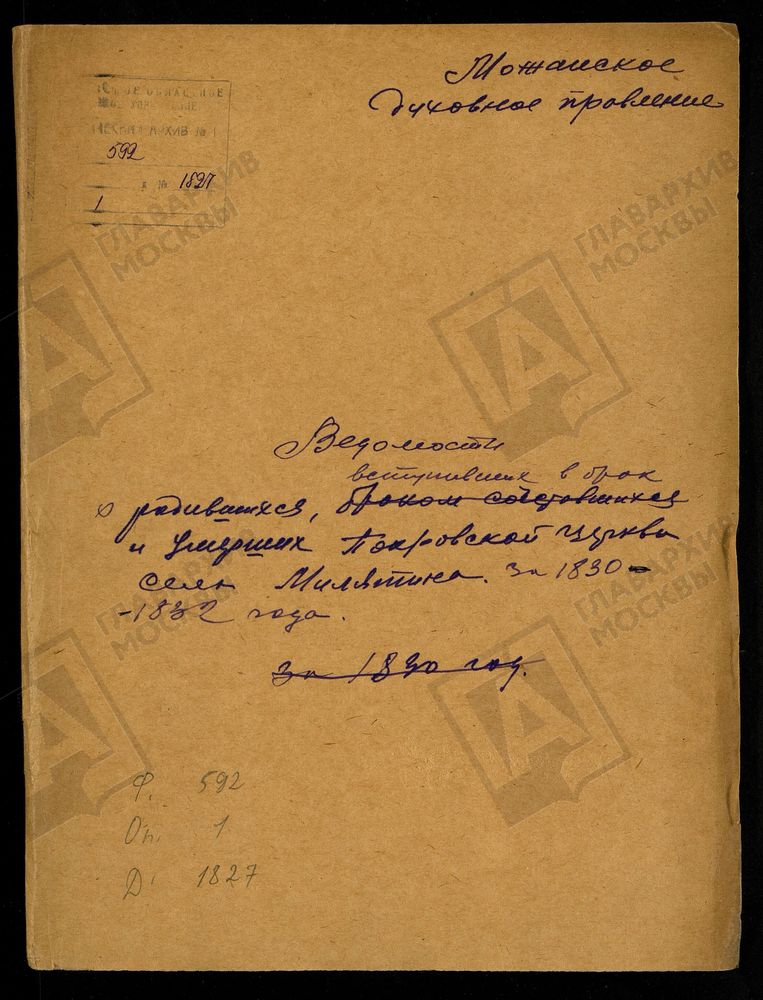 Можайское
духовное правление
АРХИВ № 1
592
№ 1827
1
ГЛАВАРХИВ
МОСКВЫ
ГЛАВАРХИВ
МОСКВЫ
Ведомости
вступивших в брак
о родившихся, браком сочетавшихся
и умерших Покровской церкви
села Милятина. за 1830 -
- 1832 года.
за 1830 год.
ГЛАВАРХИВ
МОСКВЫ
ГЛАВАРХИВ
МОСКВЫ
Ф. 592
Оп. 1
Д. 1827